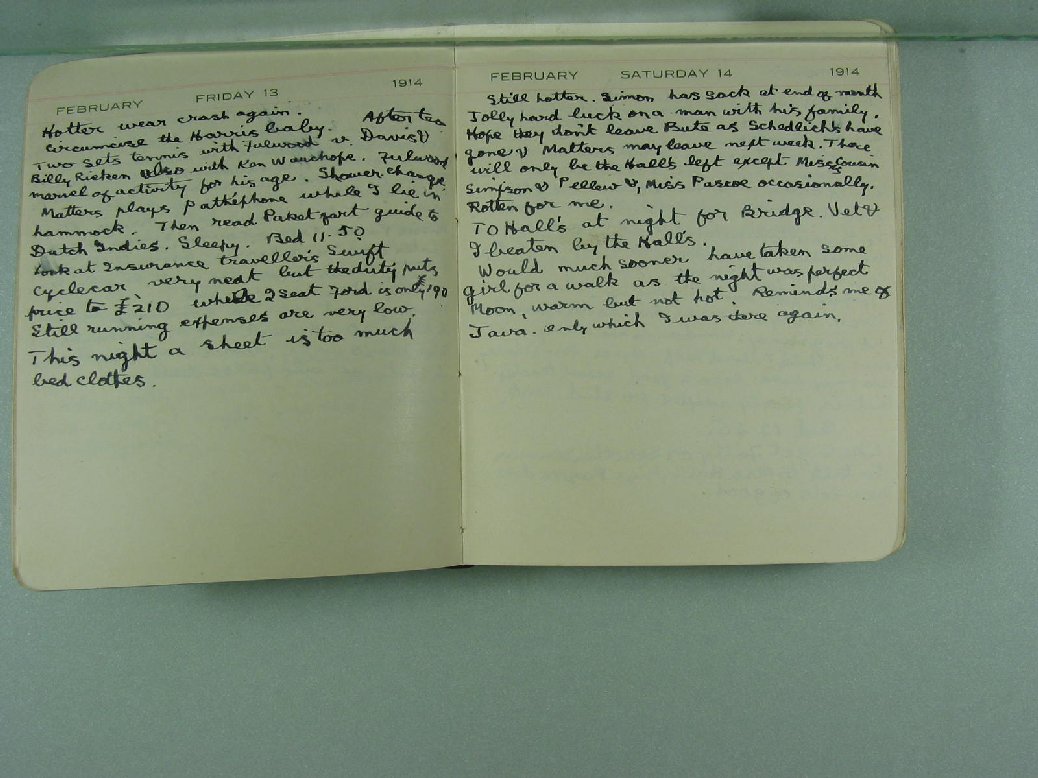 FEBRUARY FRIDAY 13 1914
Hotter wear crash again.
Circumcise the Harris baby. After tea
Two sets tennis with Fulwood v. Davis &
Billy Rieken also with Ken Wauchope. Fulwood
marvel of activity for his age. Shower change
Matters plays pathéphone while I lie in
hammock. Then read Paketvart guide to
Dutch Indies. Sleepy. Bed 11.50
Look at Insurance traveller's Swift
cyclecar very neat but the duty puts
price to £210 while 2 seat Ford is only 190
Still running expenses are very low.
This night a sheet is too much
bed clothes.
FEBRUARY SATURDAY 14 1914
Still hotter. Simon has sack at end of month
Jolly hard luck on a man with his family.
Hope they don't leave Bute as Schedlichs have
gone & Matters may leave next week. There
will only be the Halls left except Miss Swan
Simpson & Pellew &, Miss Pascoe occasionally.
Rotten for me.
To Hall's at night for Bridge. Vet &
I beaten by the Hall's.
Would much sooner have taken some
girl for a walk as the night was perfect
Moon, warm but not hot. Reminds me of
Java. only which I was there again.